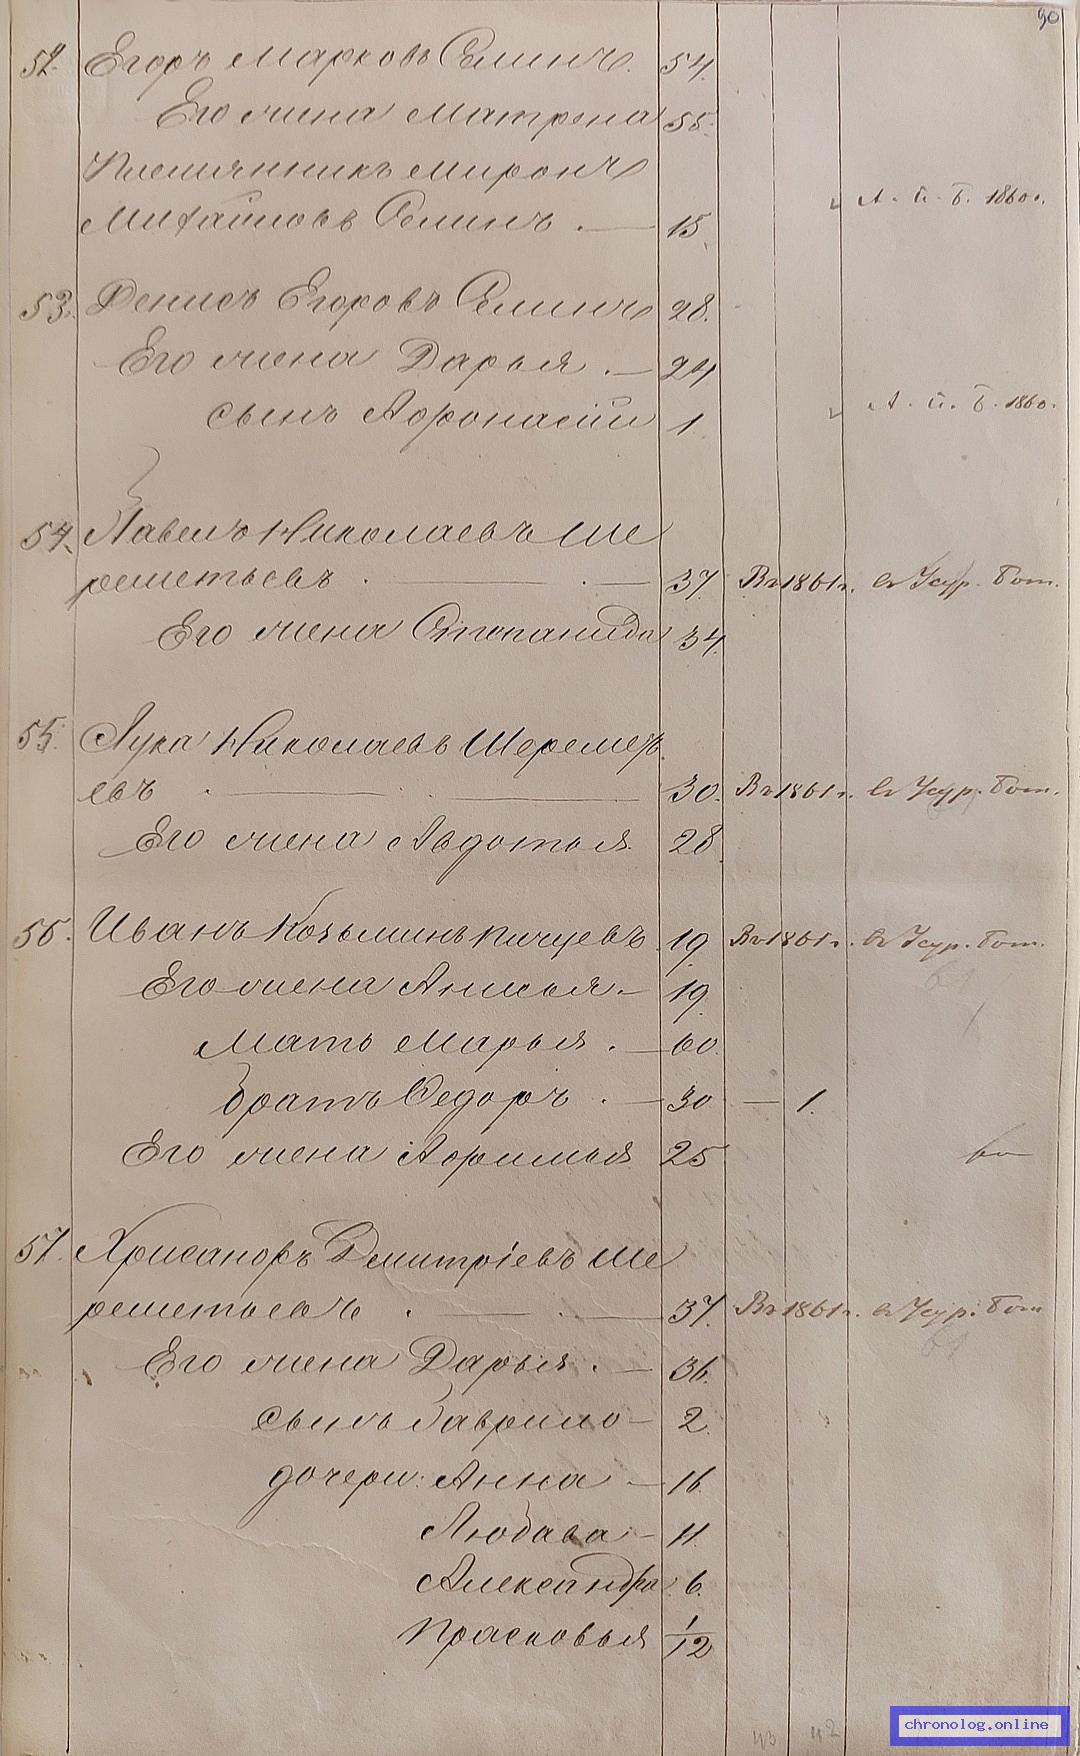 90
52. Егоръ Марковъ Селинъ. 54.
Его жена Матрена 55.
Племянникъ Миронъ
А. й. Б. 1860 г.
Михайловъ Селинъ . — 15.
53. Денисъ Егоровъ Селинъ 28.
Его жена Дарья . — 24
А. й. Б. 1860.
сынъ Афонасій 1.
54. Павелъ Николаевъ Ше
реметьевъ . — . — 37 Въ 1861 г. въ Усур. бат.
Его жена Степанида 34.
55. Лука Николаевъ Шереметь
евъ . — . — 30. Въ 1861 г. въ Усур. бат.
Его жена Авдотья 28.
56. Иванъ Козьминъ 19. Въ 1861 г. въ Усур. бат.
Его жена Анисья. – 19.
Мать Марья . — 60.
братъ Федоръ . — 30 — 1.
Его жена Афимья 25
57. Хрисанфъ Дмитріевъ Ше
реметьевъ . — . — 37. Въ 1861 г. въ Усур. бат.
Его жена Дарья . — 36.
сынъ Гаврило — 2.
дочери: Анна — 16.
Любава — 11.
Александра 6.
Прасковья 1/12
43 42
chronolog.online